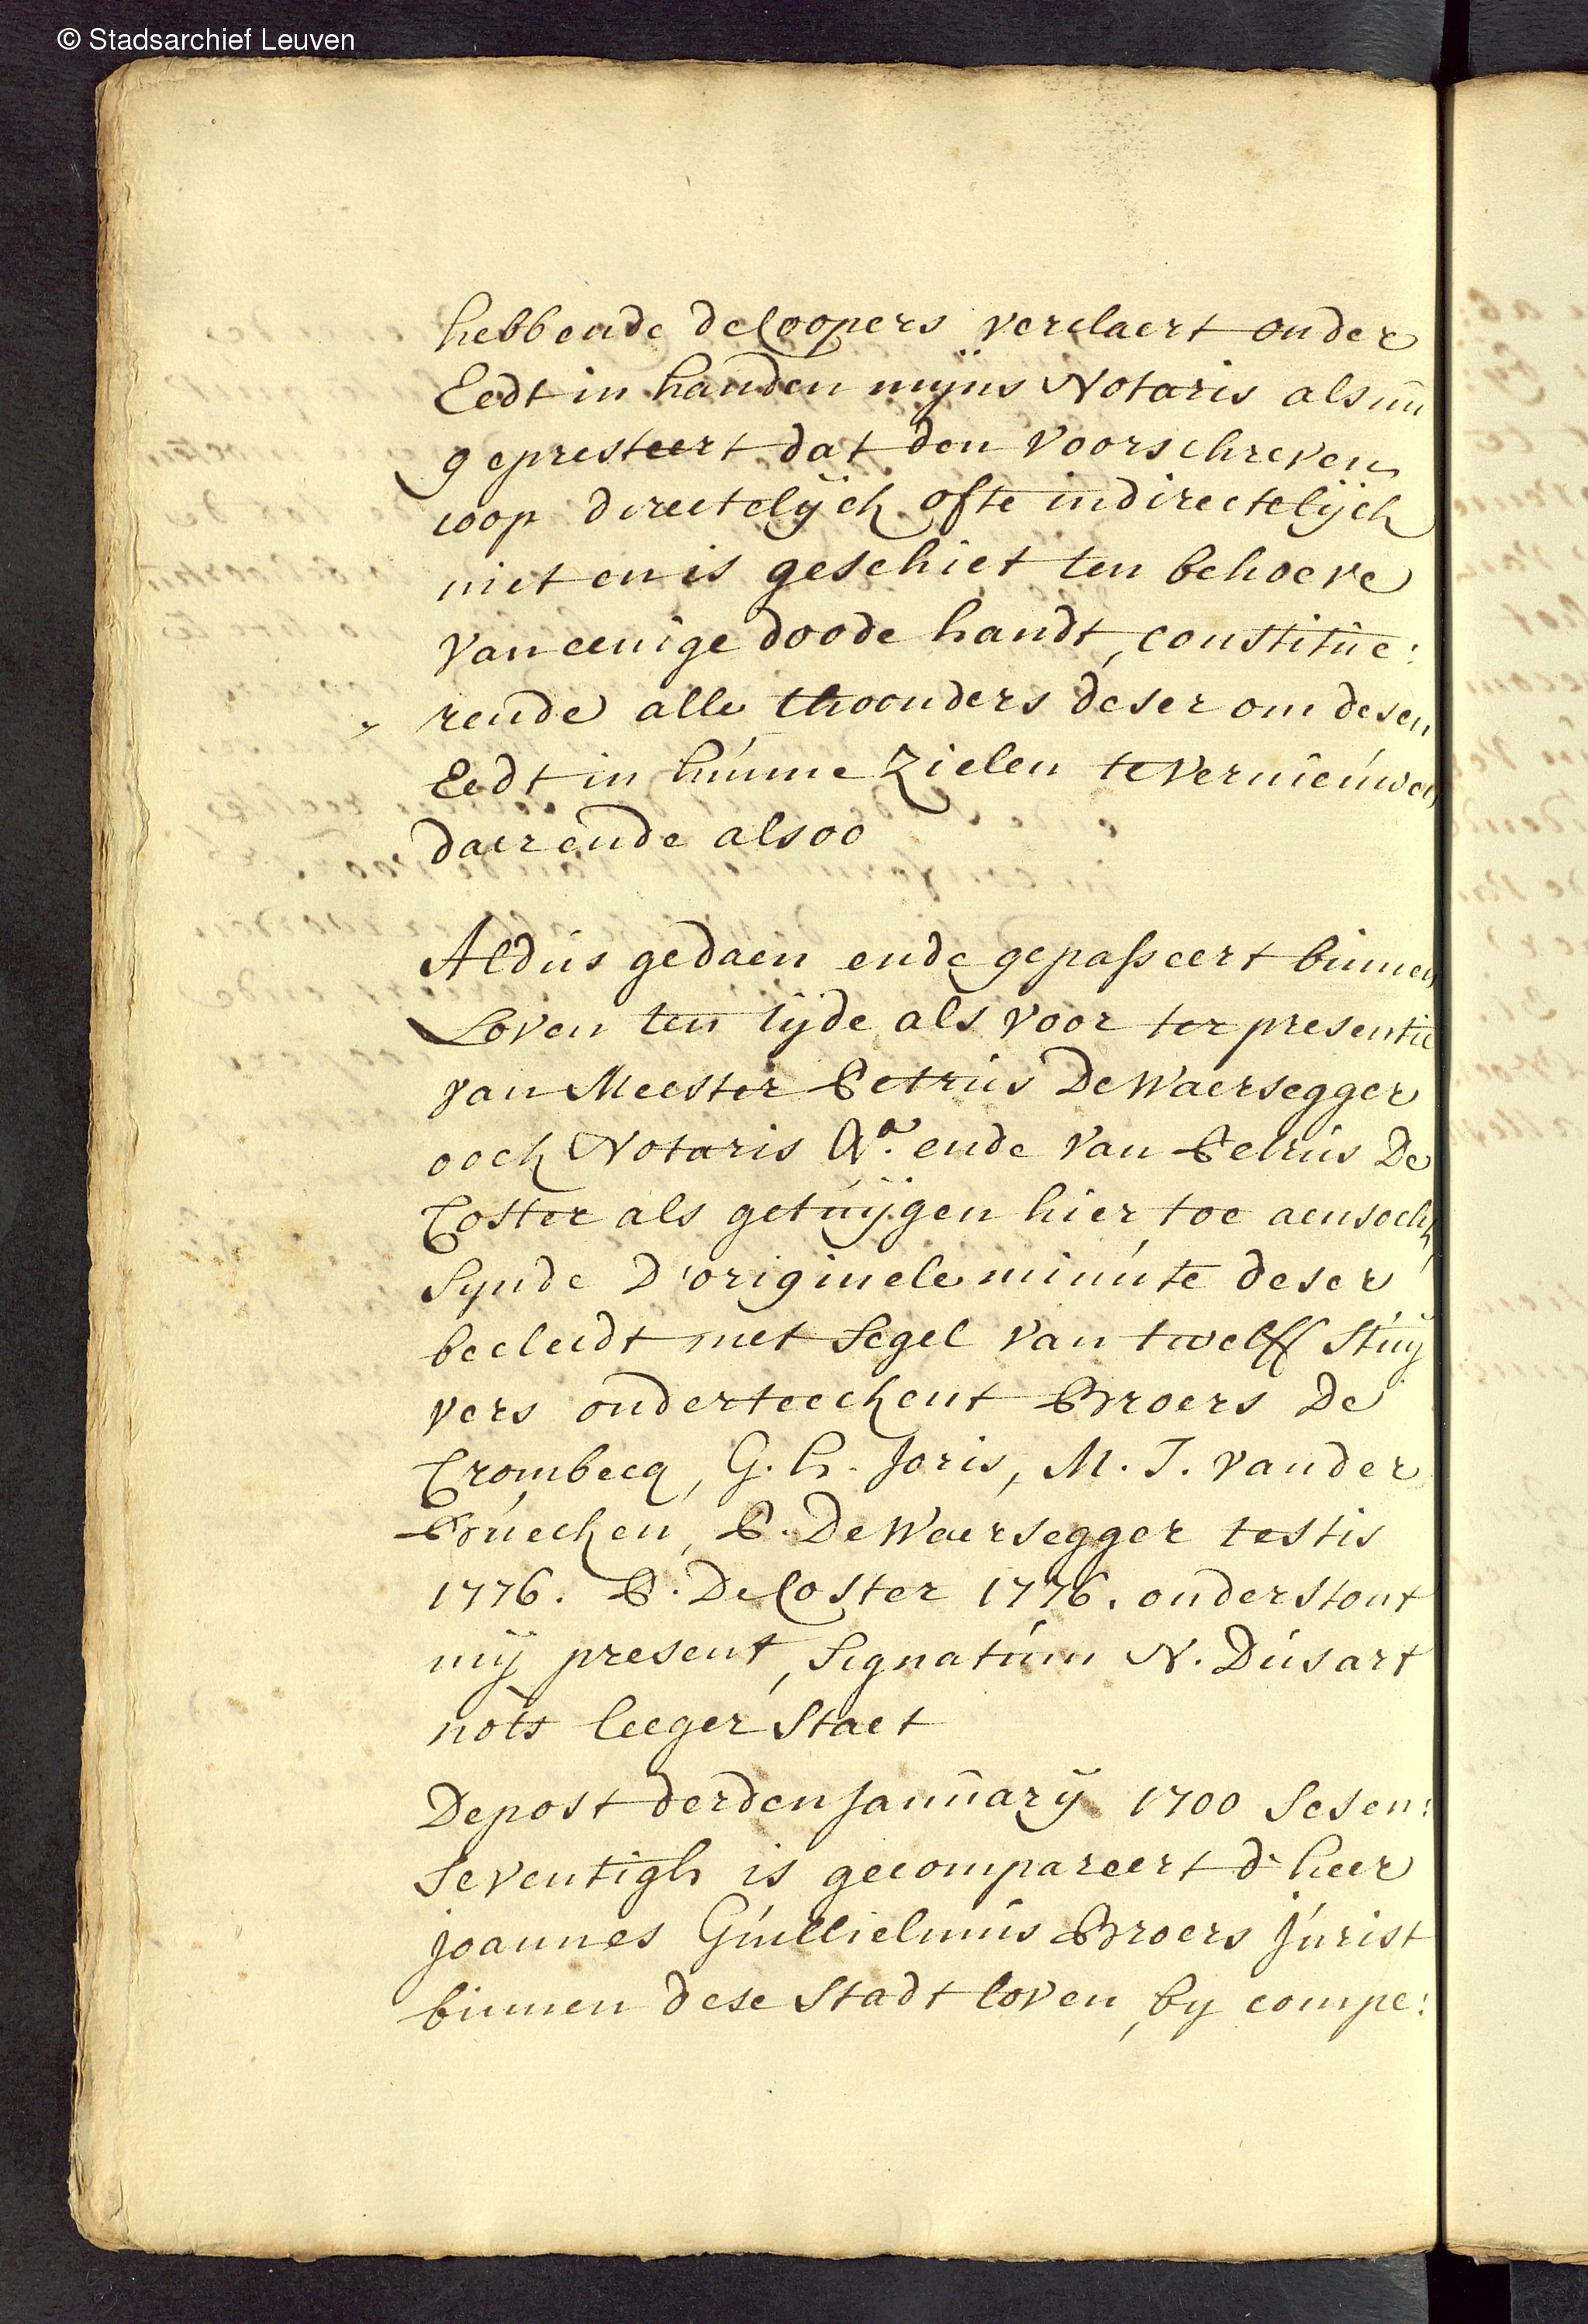 © Stadsarchief Leuven
hebbende de Coopers verclaert onder
Eedt in handen mijns Notaris als nu
gepresteert dat den Voorschreven
coop directelijck ofte indirectelijck
niet en is geschiet ten behoeve
Van eenige doode handt, constitue:
rende alle thoonders deser om desen
Eedt in hunne Zielen te vernieuwen
daer ende alsoo
Aldus gedaen ende gepasseert binnen
Loven ten tijde als voor ter presentie
van Meester Petrus De Waersegger
oock Notaris Aº. ende Van Petrus De
Coster als getuijgen hier toe aensocht,
Synde D'originele minute deser
becleedt met Segel Van twelff Stuij
vers onderteeckent Broers De
Crombecq, G. h. Joris, M. J. vander
Buecken, P. De Waersegger testis
1776. P. De Coster 1776. onderstont
mij present, Signatum N. Dusart
nots leeger Staet
Depost derden Januarij 1700 Sesen:
Seventigh is gecompareert d'heer
Joannes Guillielmus Broers Jurist
binnen dese Stadt loven, by compe: